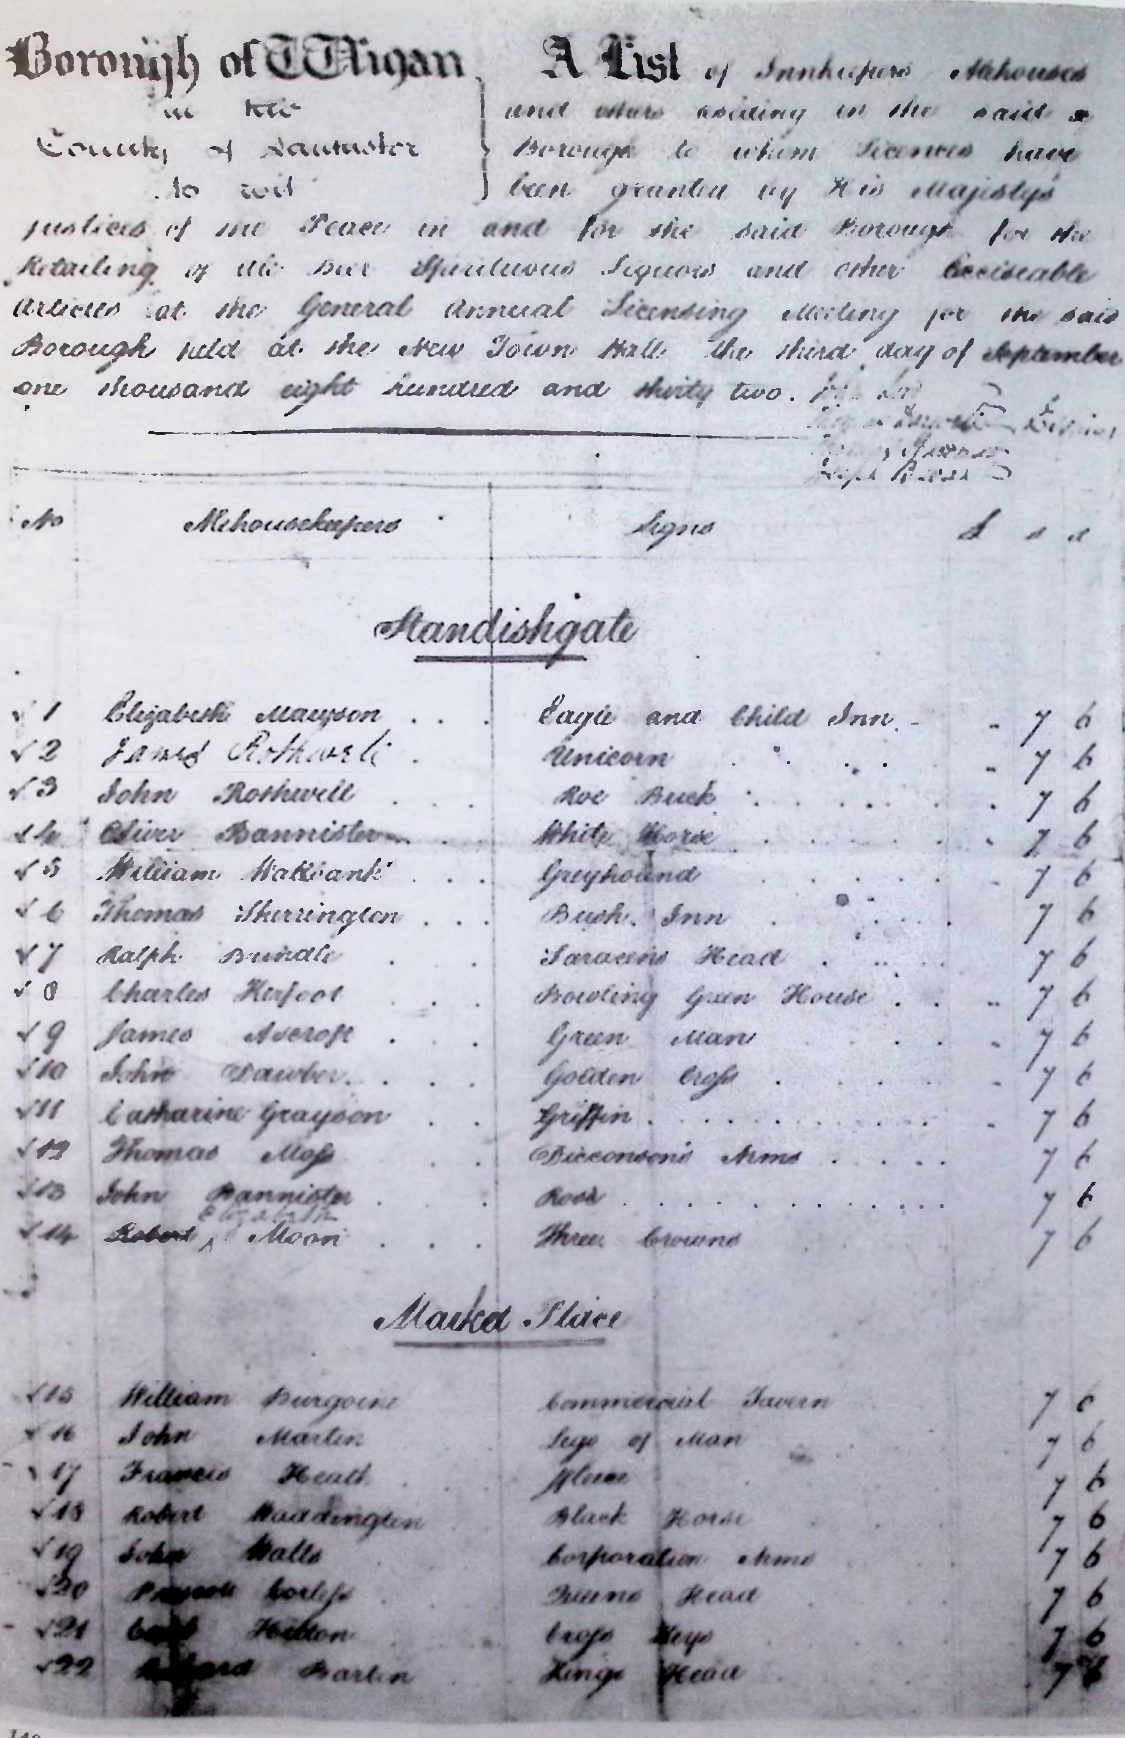 Borough of Wigan A List of Innkeepers Alehouses
in the and others residing in the said
County of Lancaster Borough to whom Licences have
to wit been granted by His Majesty's
justices of the Peace in and for the said Borough for the
Retailing of Ale Beer Spirituous Liquors and other Exciseable
Articles at the General Annual Licensing Meeting for the said
Borough held at the New Town Hall the third day of September
one thousand eight hundred and thirty two.
No Alehousekeepers Signs £ s d
Standishgate
√ 1 Elizabeth Mawson . . . Eagle and Child Inn - - 7 6
√ 2 James Rothwell . Unicorn . . . . - 7 6
√ 3 John Rothwell . . . Roe Buck . . . . . . 7 6
√ 4 Oliver Bannister . White Horse . . . . . . 7 6
√ 5 William Wallbank . . . Greyhound . . . . . - 7 6
√ 6 Thomas Sherrington . . . Bush Inn . . . . . 7 6
√ 7 Ralph Brindle . . . Saracens Head . . . . 7 6
√ 8 Charles Kerfoot . . Bowling Green House . . - 7 6
√ 9 James Ascroft . . . Green Man . . - 7 6
√ 10 John Dawber . . . Golden Cross . . . . . - 7 6
√ 11 Catharine Grayson . . Griffin . . . . . . . . . . 7 6
√ 12 Thomas Moss . . Dicconson's Arms . . . . . 7 6
√ 13 John Bannister . . Rose . . . . . . . . . . . 7 6
Elizabeth
√ 14 Robert ^ Moon . . . Three Crowns 7 6
Market Place
√ 15 William Burgoine Commercial Tavern 7 6
√ 16 John Martin Legs of Man 7 6
√ 17 Francis Heath 7 6
√ 18 Robert Waddington Black Horse 7 6
√ 19 John Walls Corporation Arms 7 6
√ 20 Corless Queens Head 7 6
√ 21 Hilton Cross Keys 7 6
√ 22 Bartin Kings Head 7 6